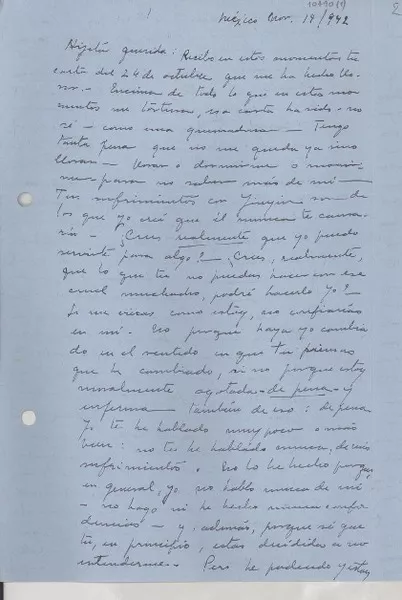 10490(1)
1
2
México Nov. 19/942
Hijita querida: Recibo en estos momentos tu
carta del 24 de octubre que me ha hecho llo-
rar.- Encima de todo lo que en estos mo-
mentos me tortura, esa carta ha sido - no
sé - como una quemadura - Tengo
tanta pena que no me queda ya sino
llorar - llorar o dormirme o morir-
me para no saber más de mí -
Tus sufrimientos con son de
los que yo creí que él nunca te causa-
ría - ¿Crees realmente que yo puedo
servirte para algo? - ¿Crees, realmente,
que lo que tú no puedas hacer con ese
cruel muchacho, podré hacerlo yo? -
Si me vieras como estoy, no confiarías
en mí. No porque haya yo cambia-
do en el sentido en que tú piensas
que he cambiado, si no porque estoy
moralmente agotada - de pena - y
enferma - también de eso: de pena
Yo te he hablado muy poco o más
bien: no te he hablado nunca, de mis
sufrimientos. No lo he hecho porque,
en general, yo no hablo nunca de mí
- no hago ni he hecho nunca confi-
dencias - y además, porque sé que
tú, en principio, estás decidida a no
entenderme. - Pero he padecido y estoy